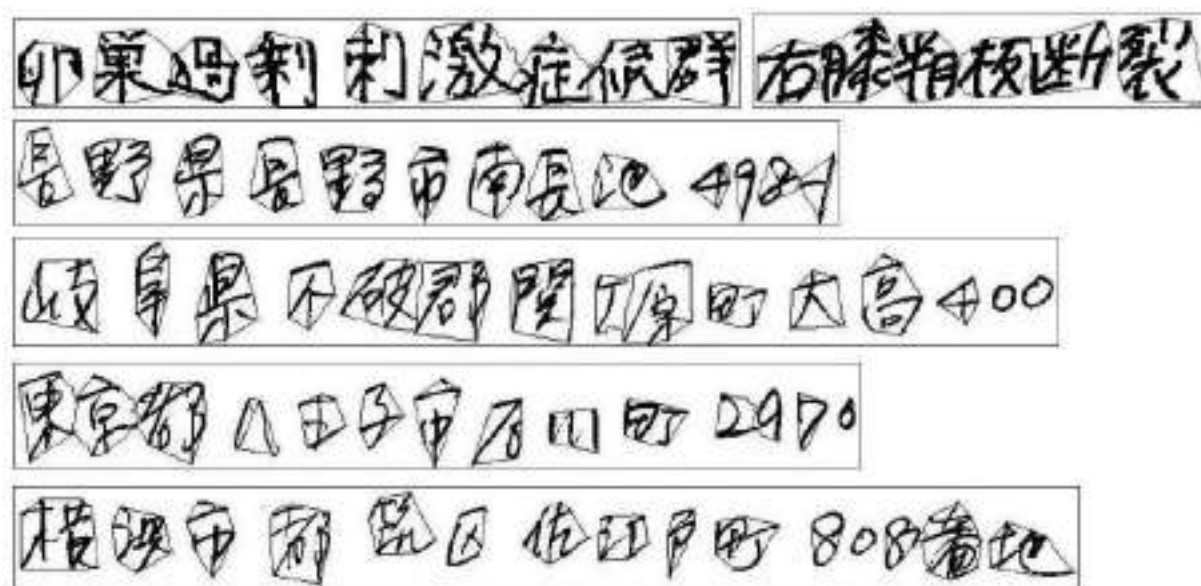 卵巣過剰刺激症候群 右膝半月板断裂
長野県長野市南長池498-1
岐阜県不破郡関ケ原町大高400
東京都八王子市石川町2970
横浜市都筑区佐江戸町808番地